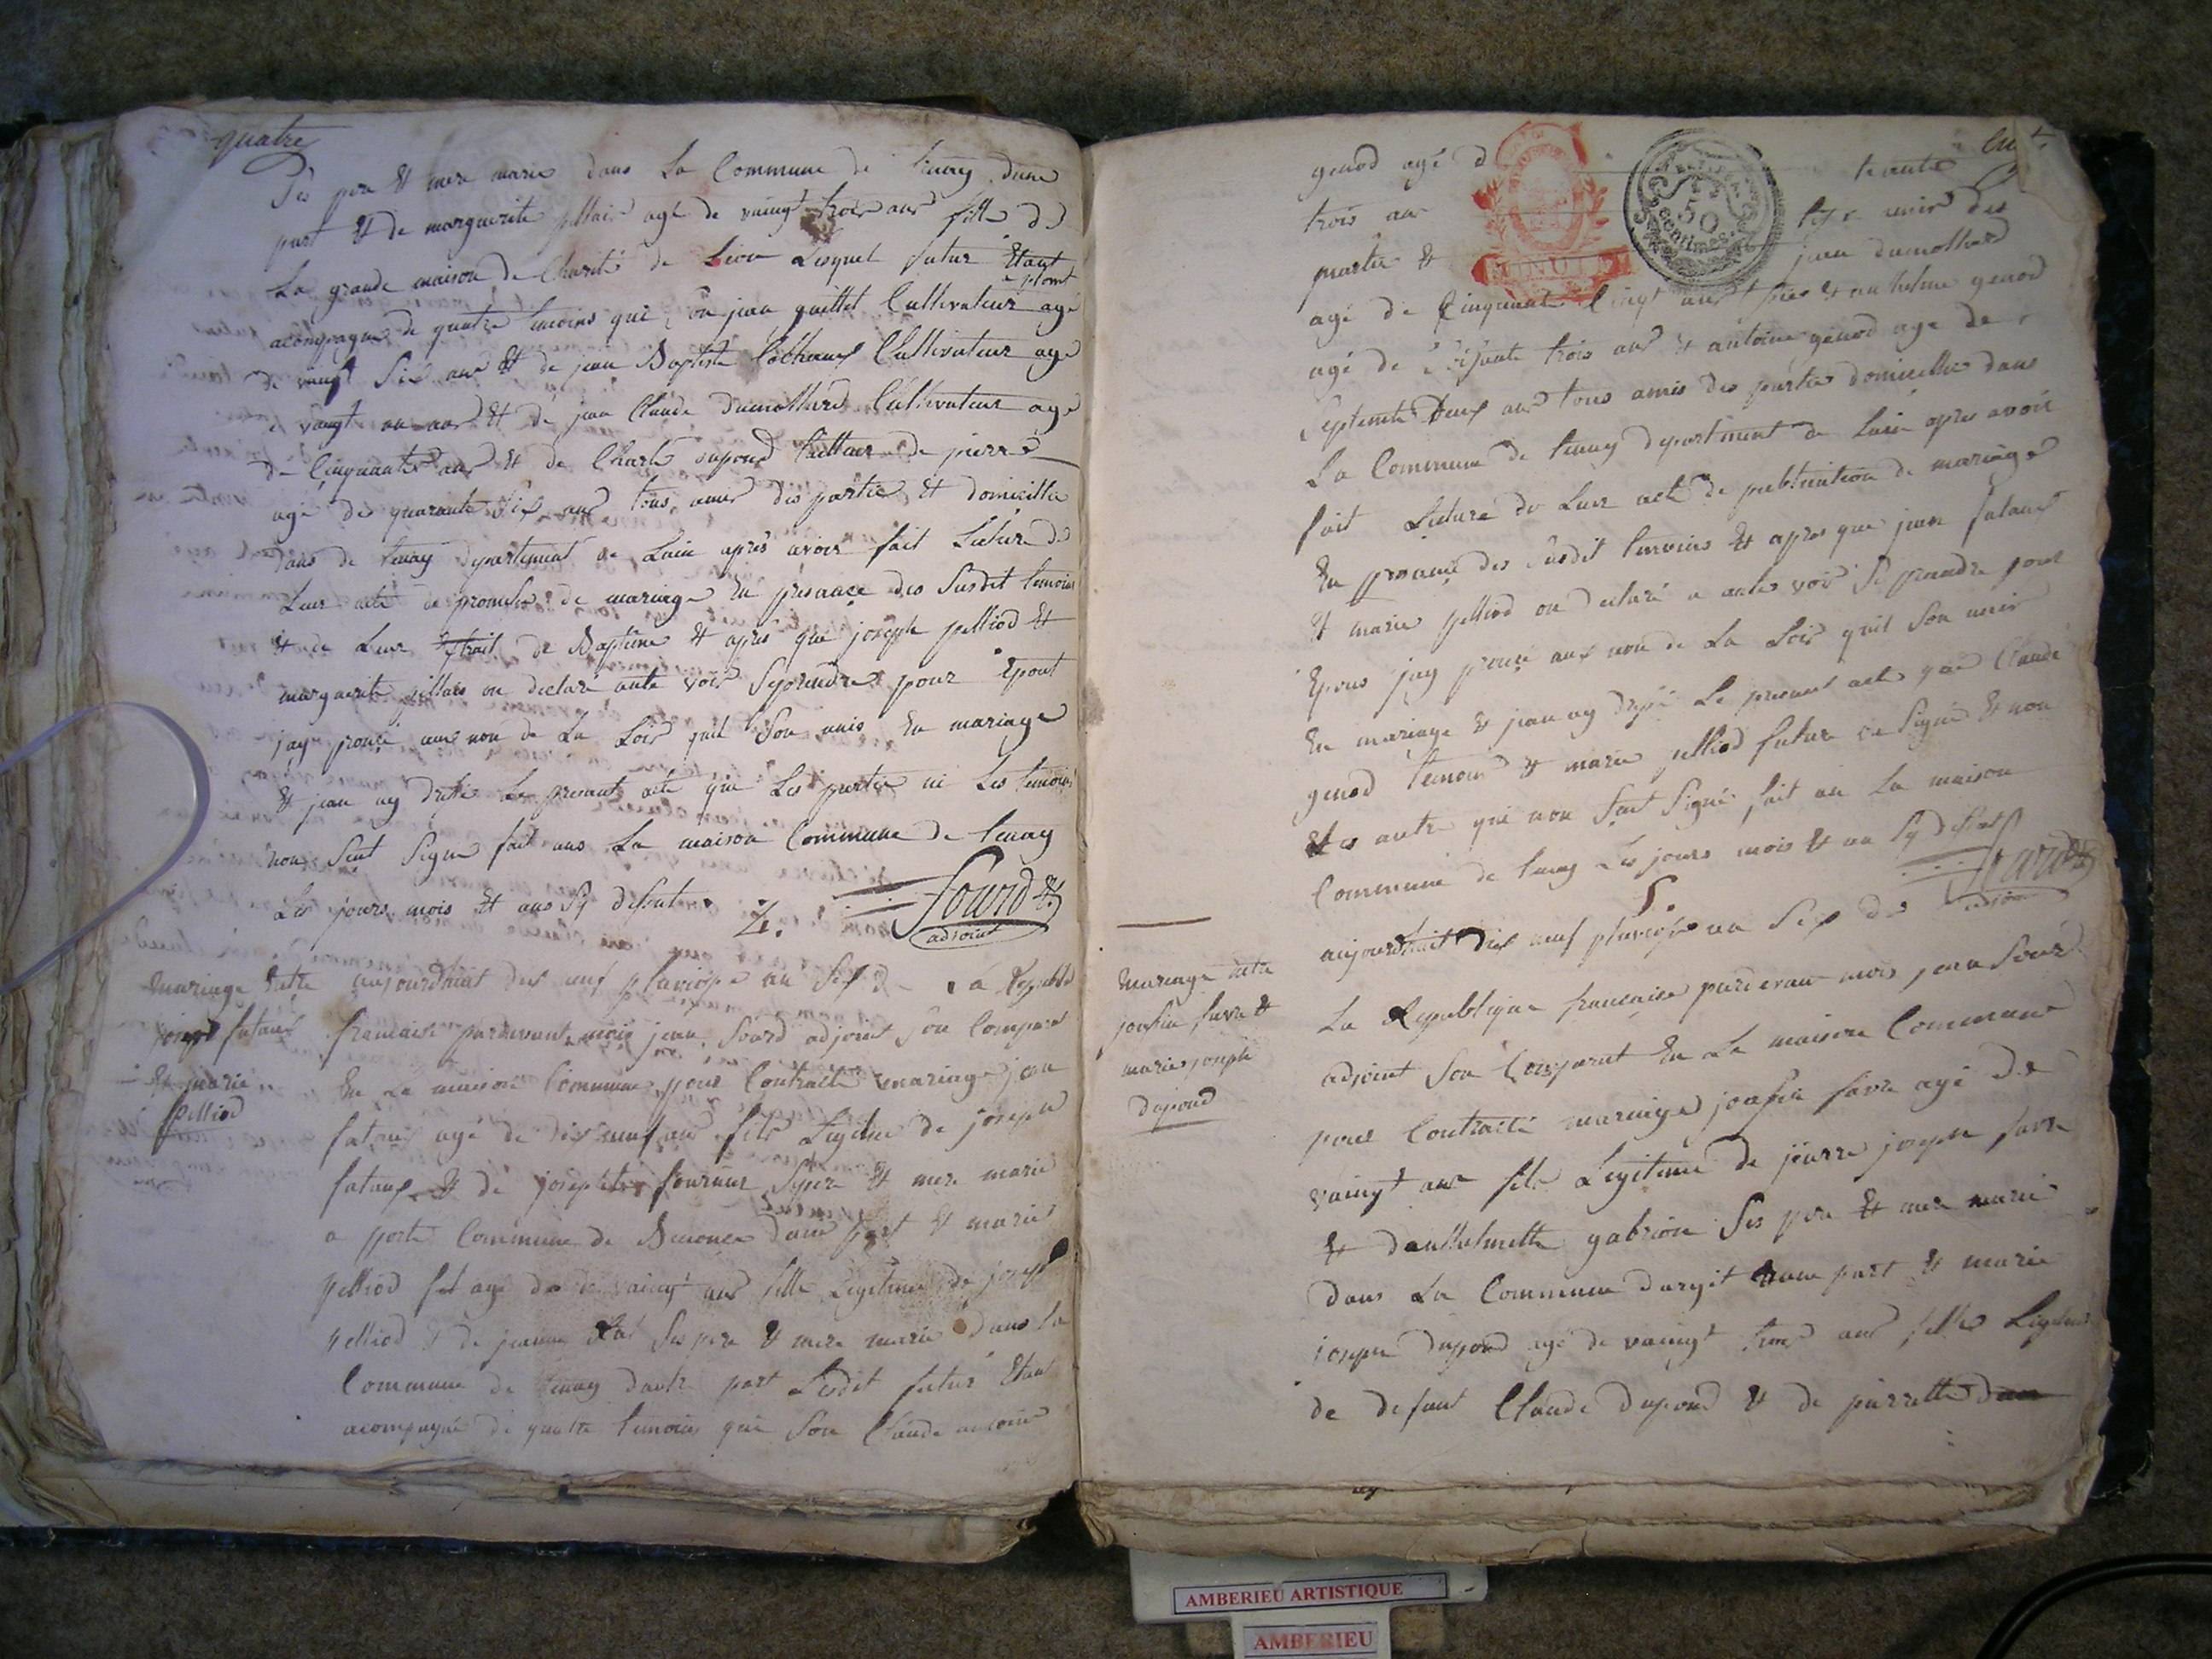 quatre
Ses pere & mere marie dans La Commune de tenay dune
part & de marguerite pillais agé de vaingt trois ans fille de
La grande maison de Charité de Lion Lesquel futur Etant
acompagné de quatre temoins qui son jean guillet Cultivateur agé
de vaingt Six ans & de jean Baptiste Cultivateur agé
de vaingt un ans & de jean Claude dumollard Cultivateur agé
de Cinquante ans & de Charle dupond tailleur de pierre
agé de quarante Six ans tous amis des partie & domicillie
dans de tenay departement de Lain apres avoir fait Lecture de
Leur acte de promesse de mariage En presance des Susdit temoins
& de Leur Extrait de Baptême & apres que joseph pelliod &
marguerite pillais on declaré aute voix Seprendre pour Epout
jay prouçé aux non de La Loix quil Son unis En mariage
& jean ay dressé Le presant acte que Les partie ni Les temoins
non Seut Signe fait ans La maison Commune de tenay
Les jours mois & ans Sy desut
4.
Sourd
adjoint
mariage Entre
fataux
& marie
pelliod
aujourdhuit dix neuf pluviose an Six de La Republi
francaise pardevant mois jean Sourd adjoint Son Comparu
En La maison Commune pour Contracté mariage jean
fataux agé de dix neuf ans fils Legitime de joseph
fataux & de josephte fournier Sepere & mere marie
a porte Commune de dune part & marie
pelliod agé de vaingt ans fille Legitime de joseph
pelliod & de jeanne Ses pere & mere marie dans La
Commune de tenay dautre part Lesdit futur Etant
acompagné de quatre temoins qui Son Claude antoine
genod agé d trante
trois ans
partie & jean dumollard
agé de Cinquante ans & anthelme genod
agé de Soisante trois ans & antoine genod age de
Septente deux ans tous amis des partie domicillie dans
La Commune de tenay departement de Lain apres avoir
fait Lecture de Leur acte de publication de mariage
En presance des Susdit temoins & apres que jean fataux
& marie pelliod on declaré a aute voix Se prandre pour
Epous jay prouçé aux non de La Loix quil Son unis
En mariage & jean ay dressé Le presant acte que Claude
genod temoins & marie pelliod future on Signé & non
Les autre qui non Sait Signé fait en La maison
Commune de tenay Les jours mois & an Sy desut
5.
Sourd
adjoint
50
Centimes
MINUTE
mariage entre
josfin favre &
marie joseph
dupond
aujourdhuit dix neuf pluviose an Six de
La Republique francaise pardevant mois jean Sourd
adjoint Son Comparut En La maison Commune
pour Contracté mariage josfin favre agé de
vaingt ans fils Legitime de pierre joseph favre
& danthelmette gabrion Ses pere & mere marie
dans La Commune dargit dune part & marie
joseph dupond agé de vaingt trois ans fille Legitime
de defunt Claude dupond & de pierrette
AMBERIEU ARTISTIQUE
AMBERIEU